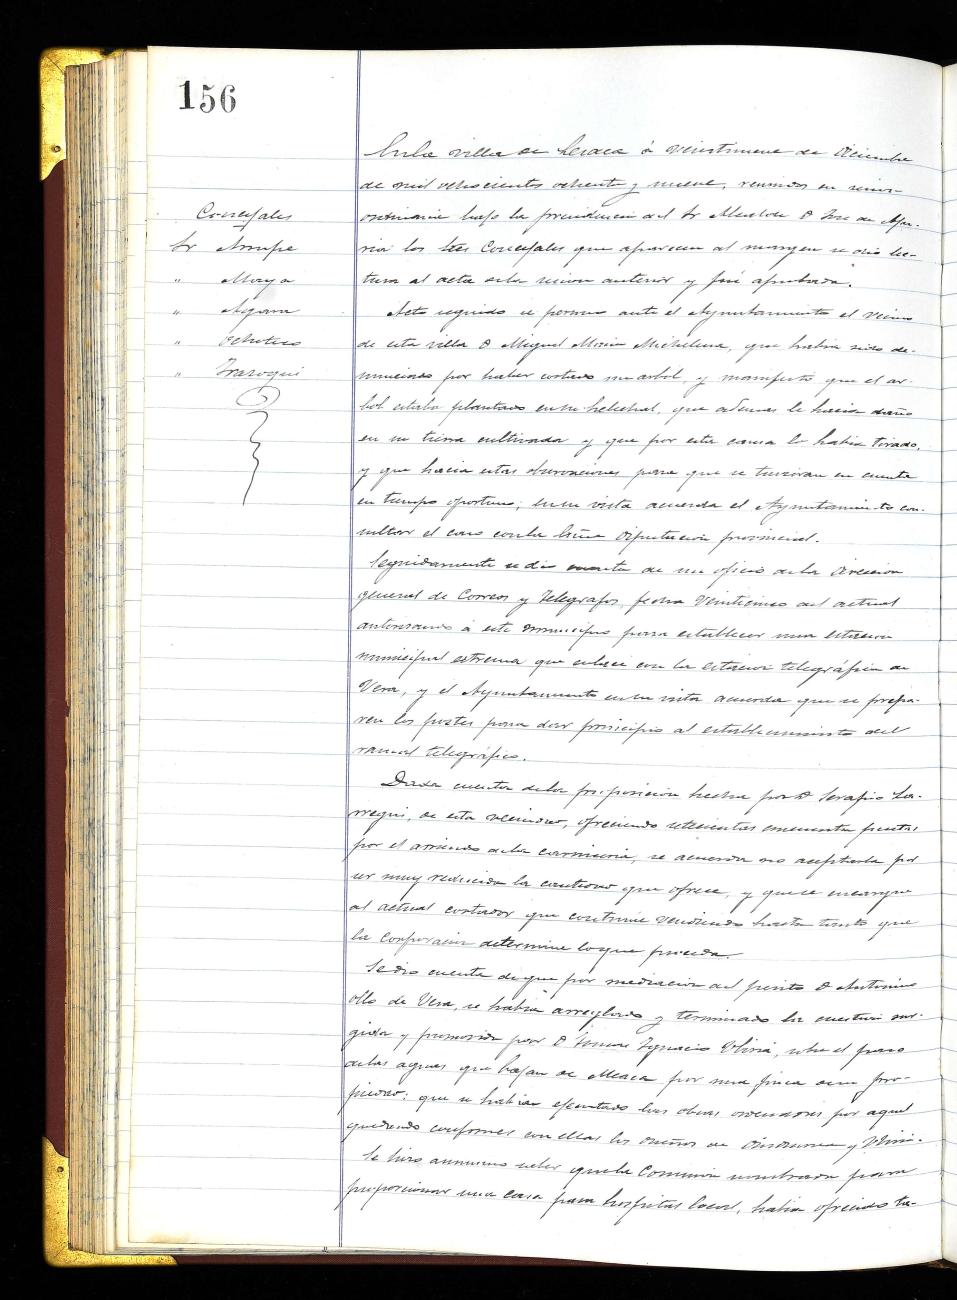 156
En la villa de Lesaca á veintinueve de Diciembre
de mil ochocientos ochenta y nueve, reunidos en sesion
ordinaria bajo la presidencia del Sr Alcalde D José de
los tres Concejales que aparecen al margen se dió lec-
tura al acta de la sesion anterior y fué aprobada.
Concejales
Sr Arrupe
" Moya
"
" Ochoteco
" Irazoqui
Acto seguido se persono ante el Ayuntamiento el vecino
de esta villa D Miguel Maria Michelena, que habia sido de-
nunciado por haber cortado un arbol, y manifestó que el ar-
bol estaba plantado en su helechal, que ademas le hacia daño
en su tierra cultivada y que por esta causa lo habia tirado,
y que hacia estas observaciones para que se tuvieran en cuenta
en tiempo oportuno; en su vista acuerda el Ayuntamiento con-
sultar el caso con la Excma Diputacion provincial.
Seguidamente se dió cuenta de un oficio de la Direccion
general de Correos y Telegrafos, fecha veinticinco del actual
autorizando á este municipio para establecer una estacion
municipal estrema que enlace con la estacion telegráfica de
Vera, y el Ayuntamiento en su vista acuerda que se prepa-
ren los postes para dar principio al establecimiento del
ramal telegráfico.
Dada cuenta de la proposicion hecha por D Serafin La-
rregui, de esta vecindad, ofreciendo setecientas cincuenta pesetas
por el arriendo de la carniceria, se acuerda no aceptarla por
ser muy reducida la cantidad que ofrece, y que se encargue
al actual cortador que continue vendiendo hasta tanto que
la Corporacion determine lo que proceda.
Se dió cuenta de que por mediacion del perito D Antonino
Ollo de Vera, se habia arreglado y terminado la cuestion sur-
gida y promovida por D Tomas Ignacio sobre el paso
de las aguas que bajan de por una finca de su pro-
piedad; que se habian ejecutado las obras ordenadas por aquel
quedando conformes con ellas los dueños de y
Se hizo asimismo saber que la Comision nombrada para
proporcionar una casa para hospital local, habia ofrecido tu-